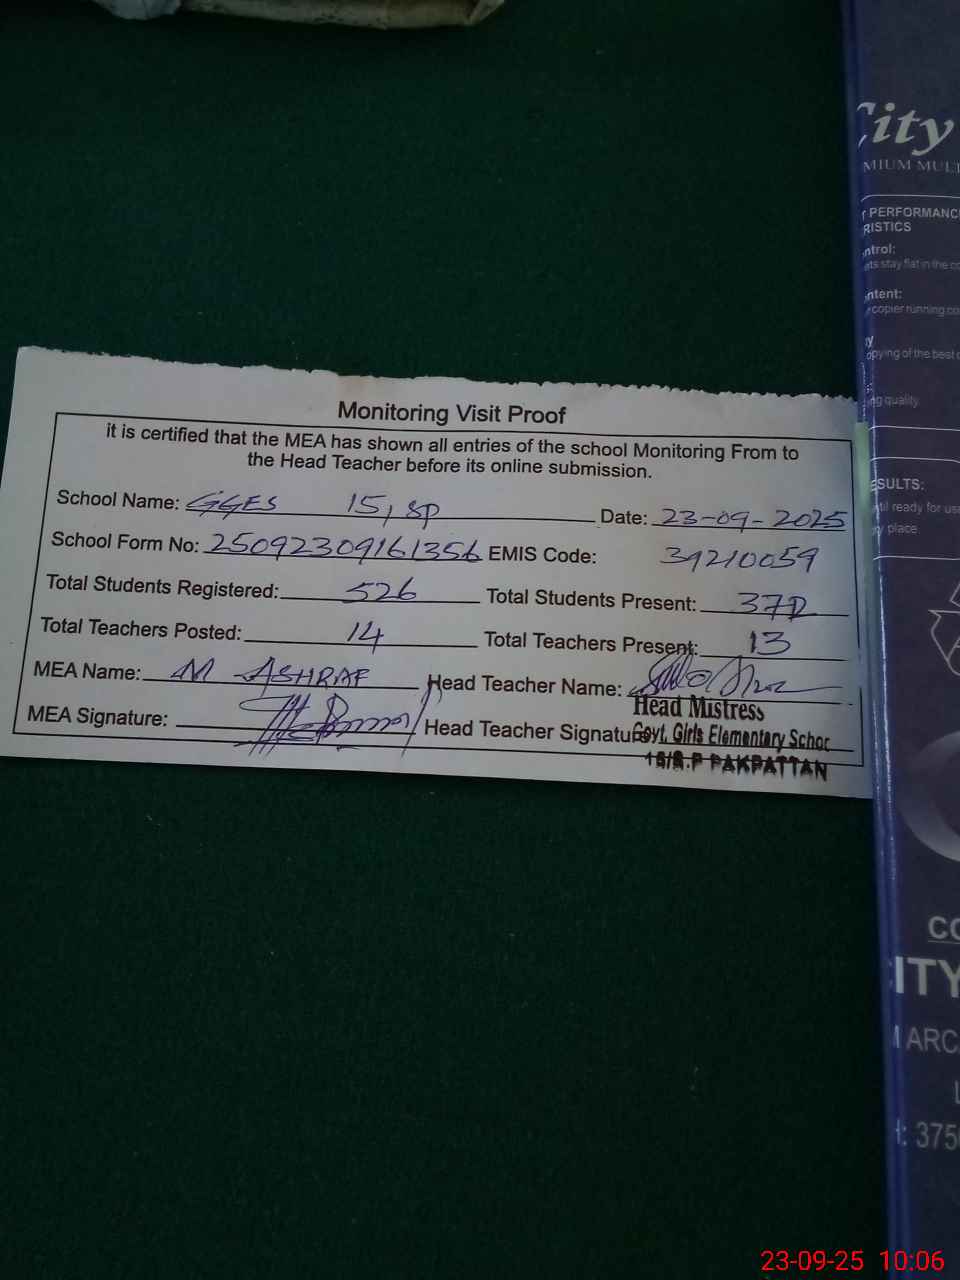 Monitoring Visit Proof
it is certified that the MEA has shown all entries of the school Monitoring From to
the Head Teacher before its online submission.
School Name: GGES 15, SP Date: 23-09-2025
School Form No: 25092309161356 EMIS Code: 39210059
Total Students Registered: 526 Total Students Present:
Total Teachers Posted: 14 Total Teachers Present: 13
MEA Name: M ASHRAF Head Teacher Name:
MEA Signature: Head Teacher Signature
Head Mistress
Govt. Girls Elementary Schoo
15/S.P PAKPATTAN
City
MIUM MULT
PERFORMANC
RISTICS
ntrol:
ets stay flat in the co
ntent:
copier running co
y
opying of the best
ng quality
ESULTS:
til ready for use
place.
CO
ITY
ARC
375
23-09-25 10:06